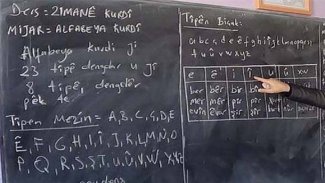 Ders = ZIMANÊ KURDÎ
MIJAR = ALFABEYA KURDÎ
Alfabeya Kurdî ji
23 tîpê dengdar û ji
8 tîpê dengdêr
pêk tê.
Tîpen Mezin = A, B, C, Ç, D, E
Ê, F, G, H, I, Î, J, K, L, M, N, O
P, Q, R, S, Ş, T, U, Û, V, W, X, Y, Z
Tîpên Biçûk:
a b c ç d e ê f g h i î j k l m n o p q r s ş
t u û v w x y z
e ê i î u û xw
ber bêr bir
mer mêr pir pîr
evîn êvar jin jîn